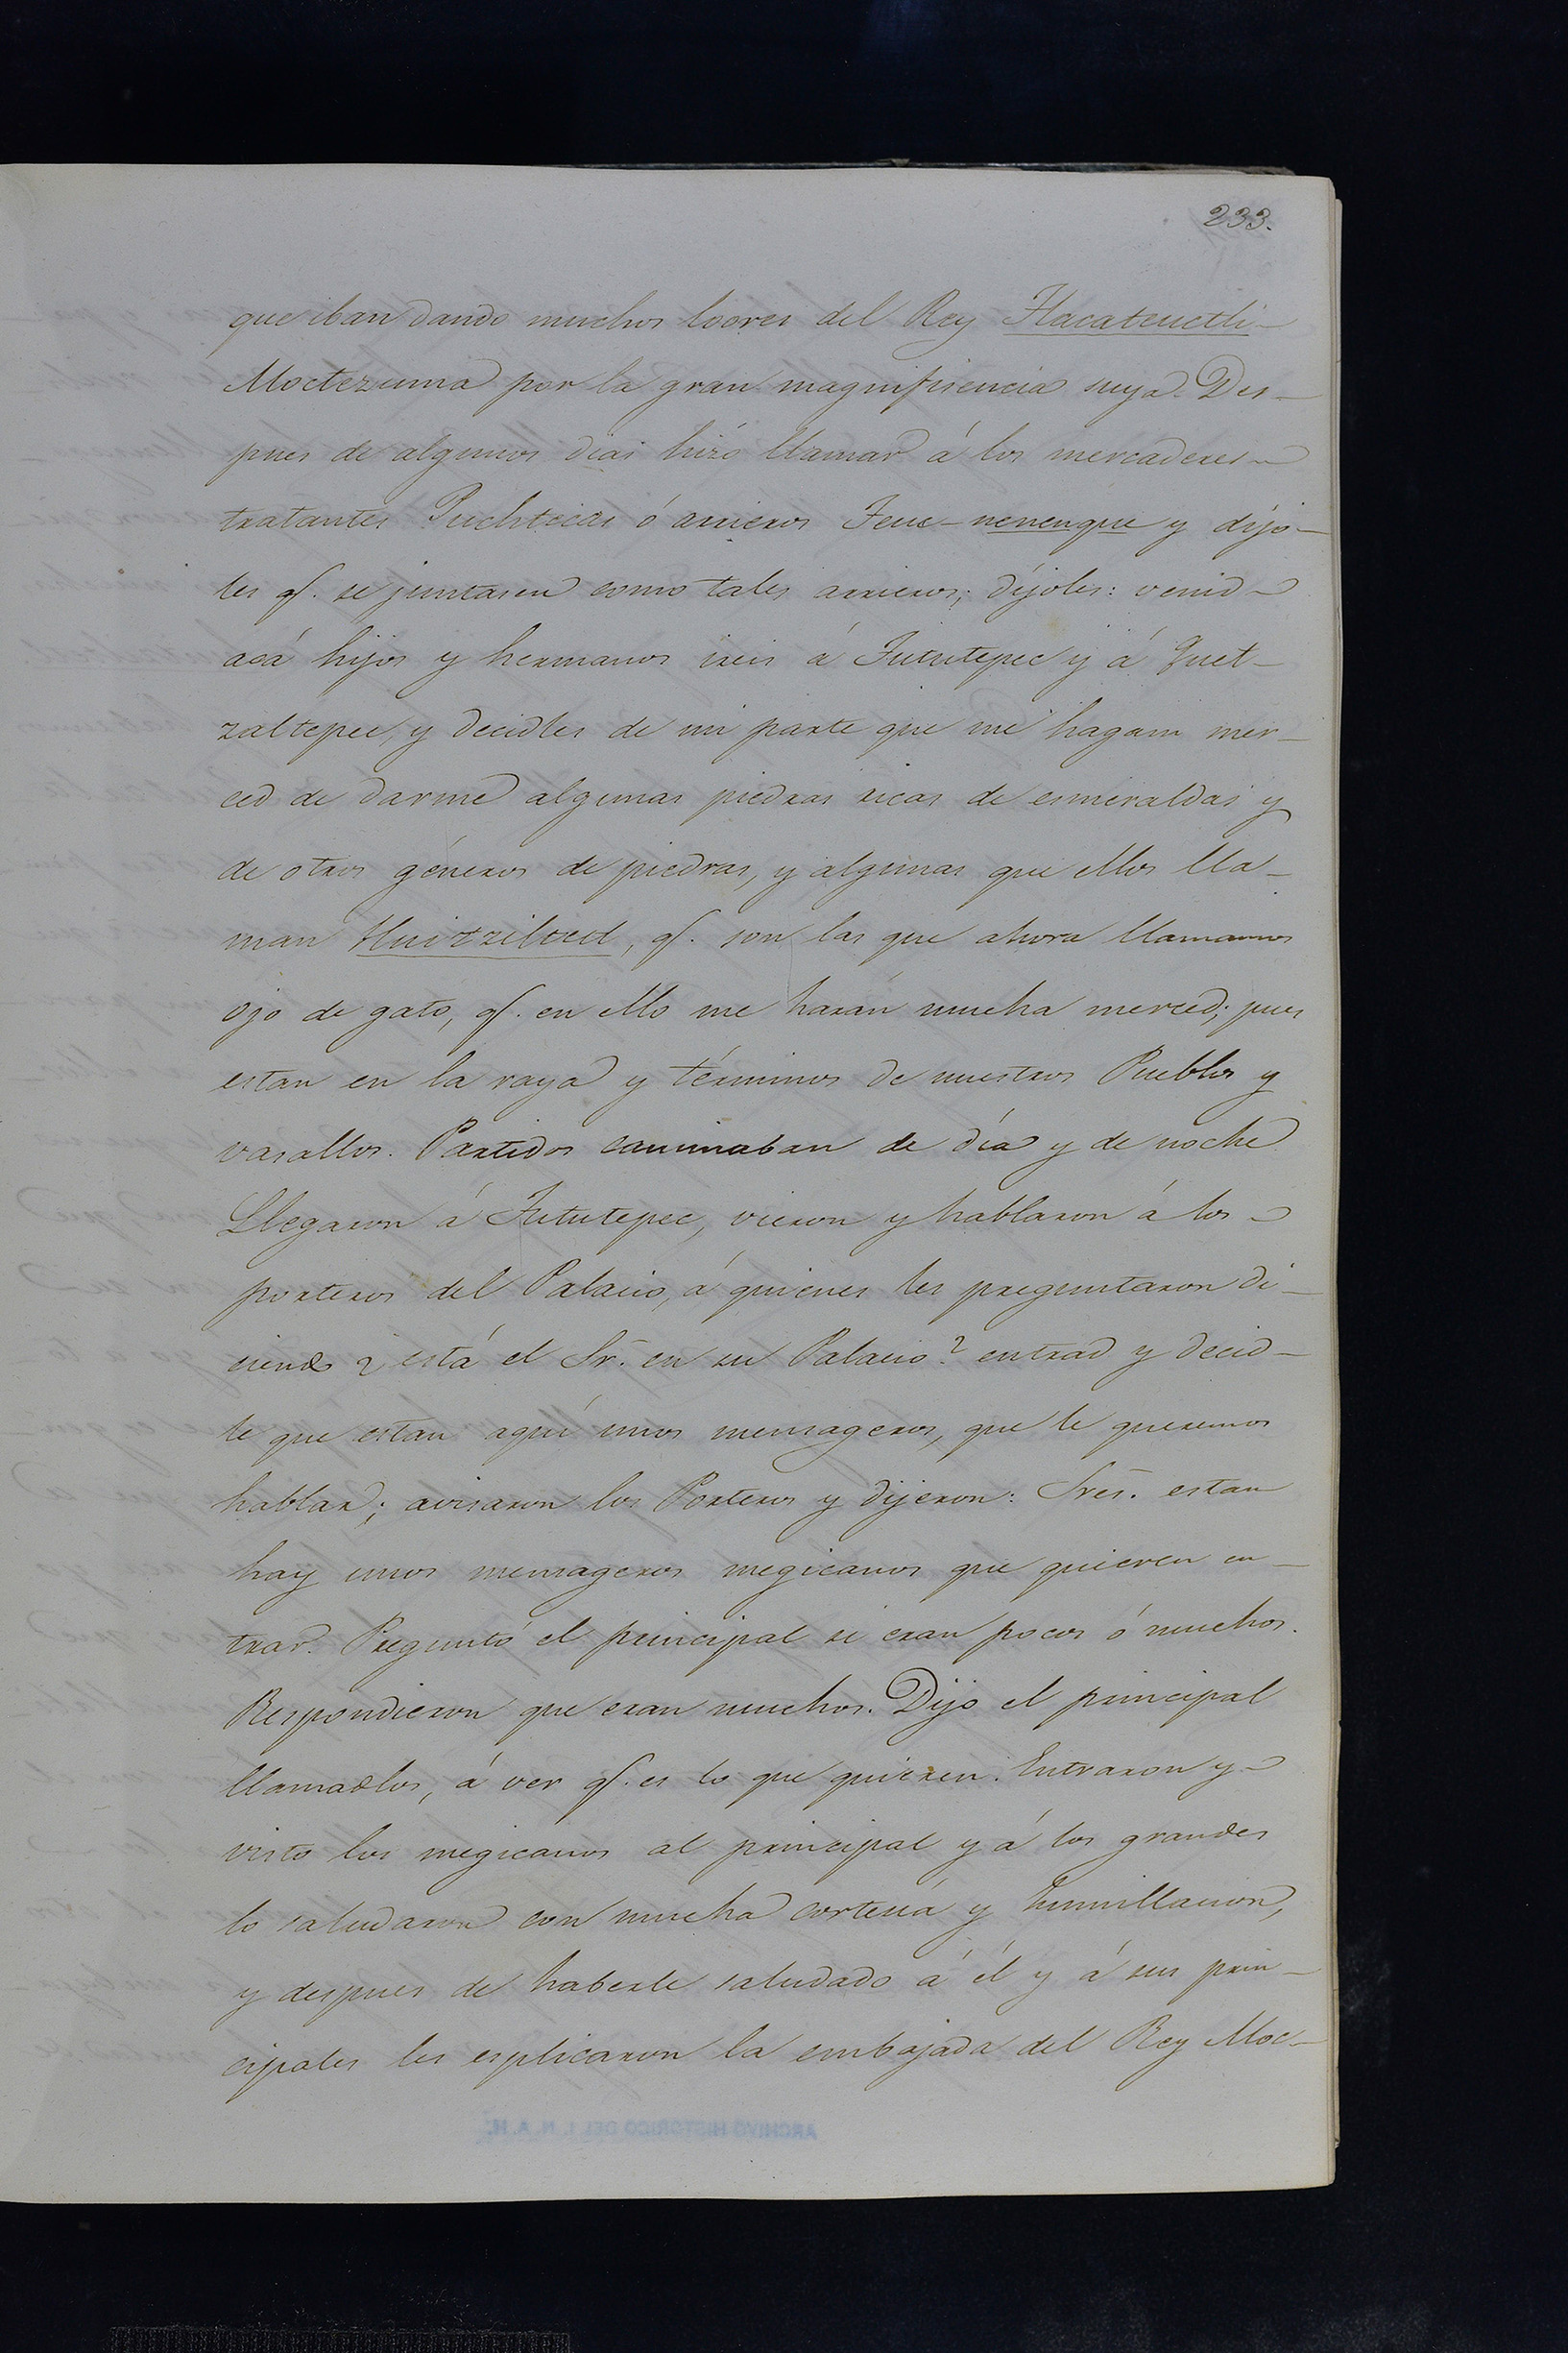 233.
que iban dando muchos loores del Rey Tlacateuctli-
Moctezuma por la gran magnifisencia suya. Des-
pues de algunos dias hizó llamar á los mercaderes-
tratantes Puchtecas ó arrieros Teuc-nenenque y dijo-
les q. se juntasen como tales arrieros; díjoles: venid-
acá hijos y hermanos ireis á Tututepec y á Quet-
zaltepec, y decidles de mi parte que me hagan mer-
ced de darme algunas piedras ricas de esmeraldas y
de otros géneros de piedras, y algunas que ellos lla-
man, q. son las que ahora llamamos
ojo de gato, q. en ello me harán mucha merced; pues
estan en la raya y términos de nuestros Pueblos y
vasallos. Partidos caminaban de día y de noche
Llegaron á Tututepec, vieron y hablaron á los-
porteros del Palacio, á quienes les preguntaron di-
ciendo ¿ está el Sr. en su Palacio? entrad y decid-
le que estan aquí unos mensageros, que le queremos
hablar; avisaron los Porteros y dijeron: Sres. estan
hay unos mensageros megicanos que quieren en-
trar. Preguntó el principal si eran pocos ó muchos.
Respondieron que eran muchos. Dijo el principal
llamadlos, á ver q. es lo que quieren. Entraron y-
visto los megicanos al principal y á los grandes
lo saludaron con mucha cortesía y humillacion,
y despues de haberle saludado á él y á sus prin-
cipales les esplicaron la embajada del Rey Moc-
ARCHIVO HISTORICO DEL I. N. A. H.